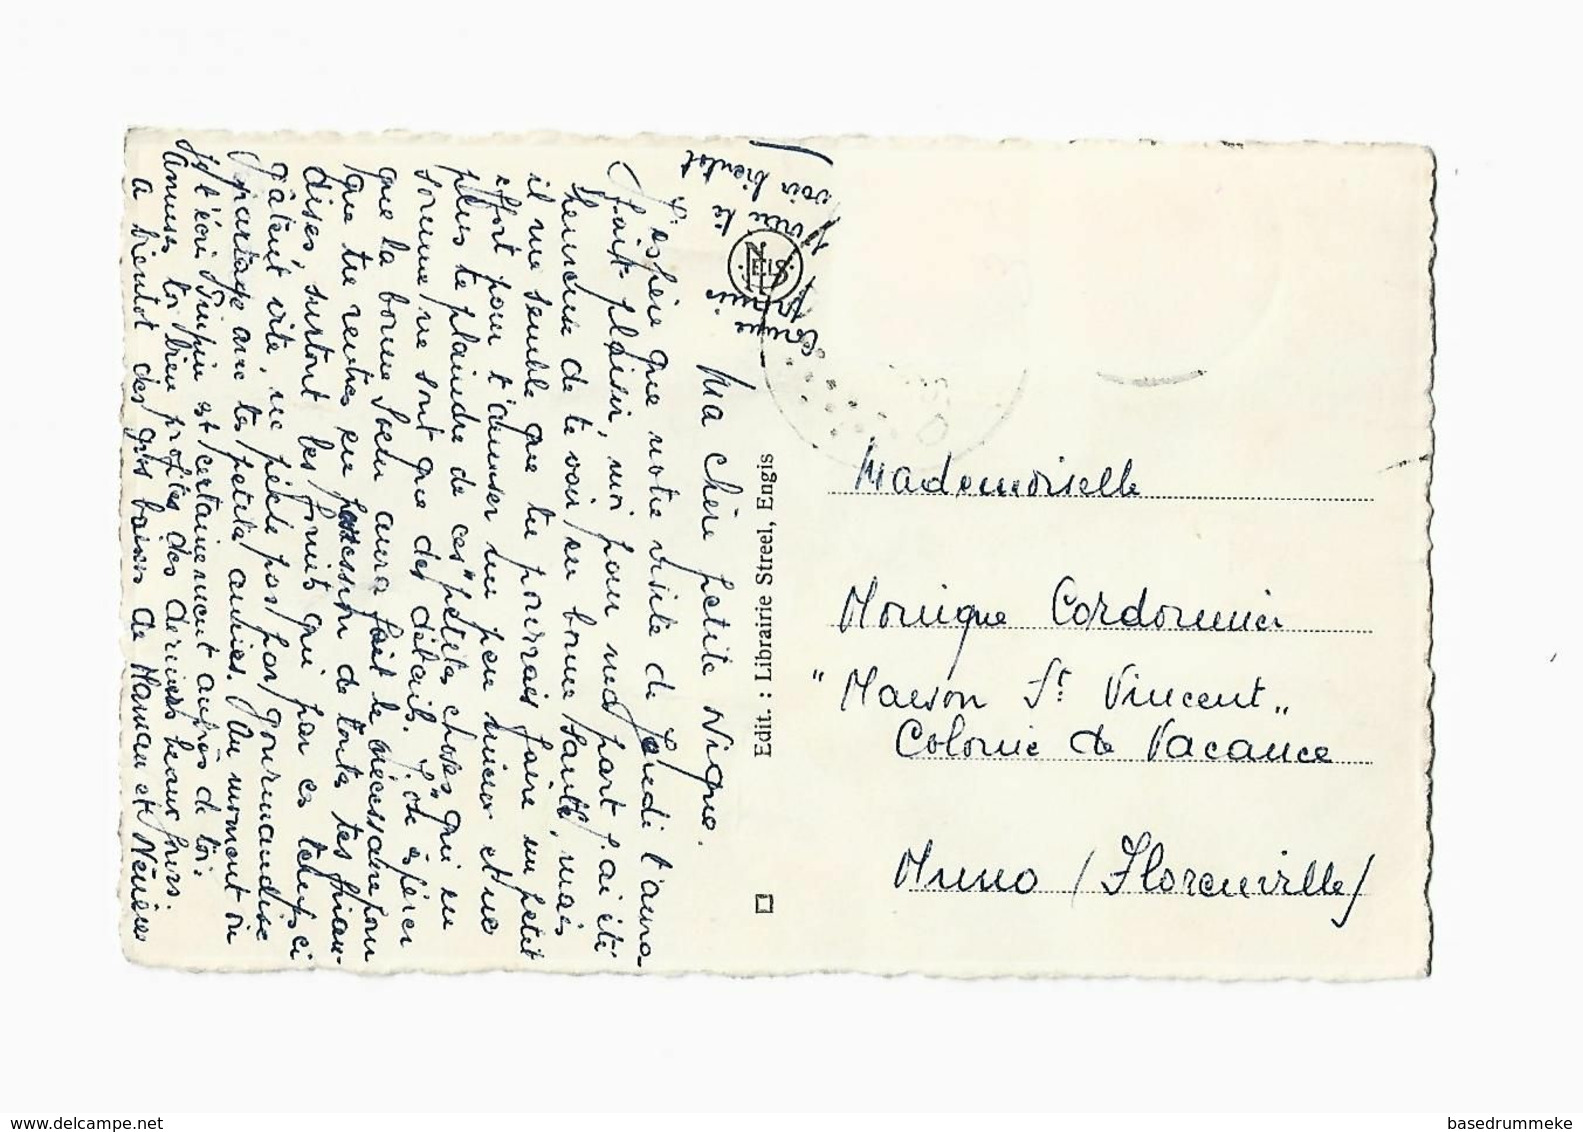 Ma chère petite Nique.
J'espère que notre visite de lundi t'aura
fait plaisir, moi pour ma part j'ai été
heureuse de te voir en bonne santé, mais
il me semble que tu pourrais faire un petit
effort pour t'amuser un peu mieux et ne
plus te plaindre de ces "petites choses" qui en
somme ne sont que des détails. J'ose espérer
que la bonne Soeur aura fait le nécessaire pour
que tu rentres en possession de toutes tes frian-
dises, surtout les fruits qui par ce temps ci
gâtent vite, ne pèche pas par gourmandise
partage avec tes petites amies. Au moment où
je t'écris Pimpin est certainement auprès de toi.
Amuses toi bien profites des derniers beaux jours.
A bientôt des gros baisers de Maman et Nénène
voir bientôt
EIS
Edit. : Librairie Streel, Engis
Mademoiselle
Monique Cordonnier
"Maison St Vincent"
Colonie de Vacance
Muno (Florenville)
www.delcampe.net
basedrummeke